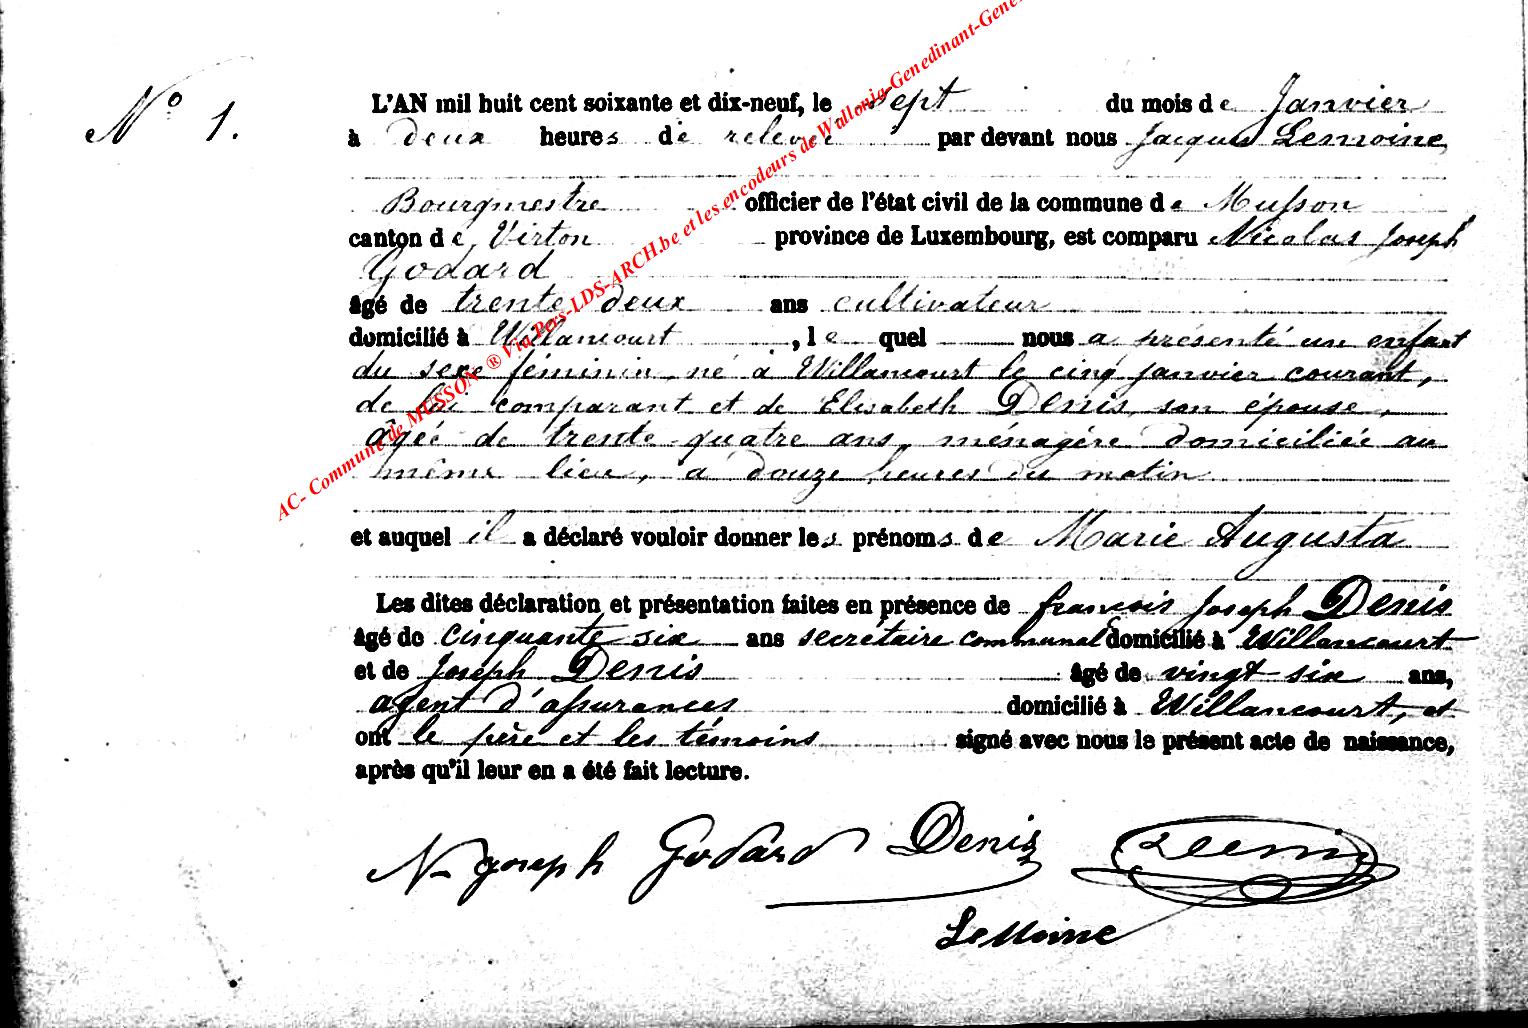 N° 1.
L'AN mil huit cent soixante et dix-neuf, le sept du mois de Janvier
à deux heures de relevée par devant nous Jacques Lemoine,
Bourgmestre officier de l'état civil de la commune de Musson
canton de Virton province de Luxembourg, est comparu Nicolas Joseph
Godard
âgé de trente deux ans cultivateur
domicilié à Willancourt, le quel nous a présenté un enfant
du sexe féminin, né à Willancourt le cinq janvier courant,
de lui comparant et de Elisabeth Denis, son épouse,
âgée de trente-quatre ans, ménagère domiciliée au
même lieu, à douze heures du matin
et auquel il a déclaré vouloir donner les prénoms de Marie Augusta
Les dites déclaration et présentation faites en présence de françois Joseph Denis
âgé de cinquante six ans secrétaire communal domicilié à Willancourt
et de Joseph Denis âgé de vingt six ans,
agent d'assurances domicilié à Willancourt, et
ont le père et les témoins signé avec nous le présent acte de naissance,
après qu'il leur en a été fait lecture.
N Joseph Godard Denis Denis
Lemoine
AC- Commune de MUSSON ® Via Pers-LDS-ARCH.be et les encodeurs de Wallonia-Genedinant-Gene